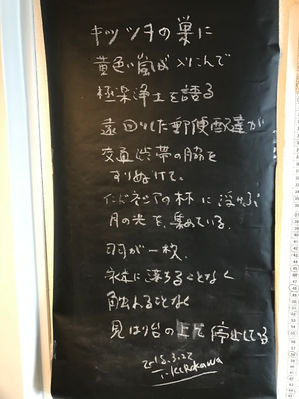 キツツキの巣に
黄色い嵐が入りこんで
極楽浄土を誘る
遠回りした郵便配達が
交通渋帯の脇を
すりぬけて、
インドネシアの林に浮かぶ
月の光を、集めている.
羽が一枚、
床に落ちることなく
触れることなく
見はり台の上で停止している
2018.3.22